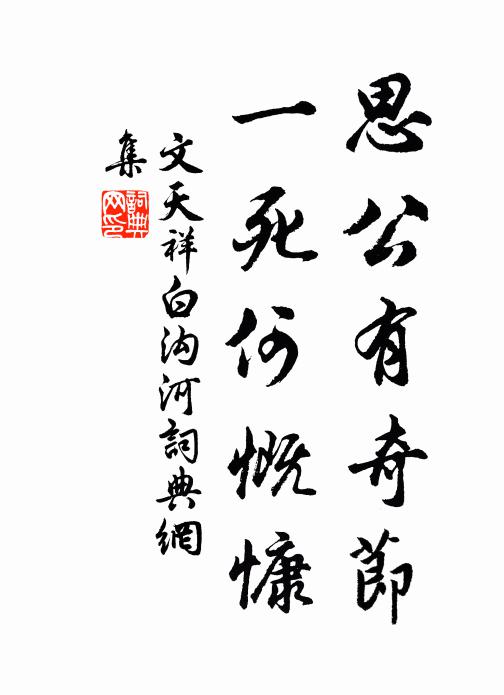 思公有奇節
一死何慨慷
文天祥白沟河詞典網
集
詞典
网印